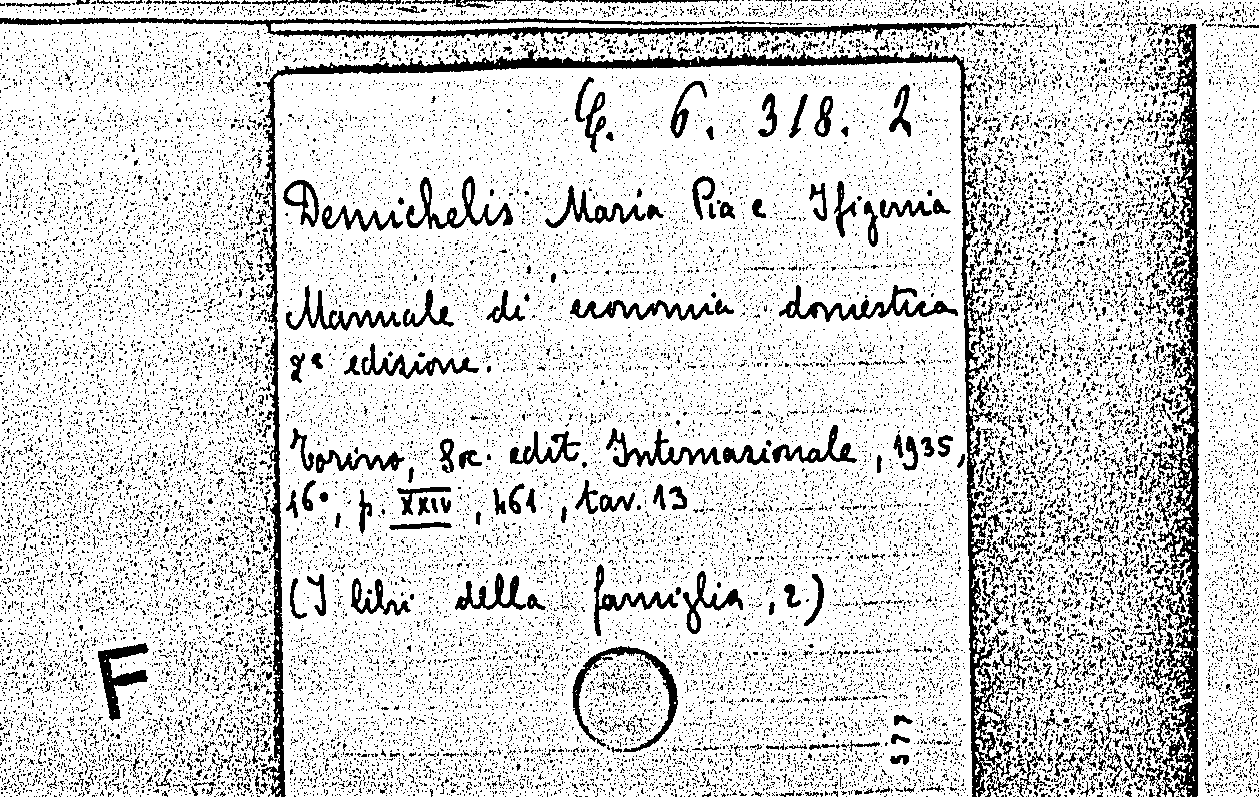 C. 6. 318. 2
Demichelis Maria Pia e Ifigenia
Manuale di economia domestica
7ª edizione.
Torino, Soc. edit. Internazionale, 1935,
16°, p. XXIV, 461, tav. 13
(I libri della famiglia, 2.)
F
577